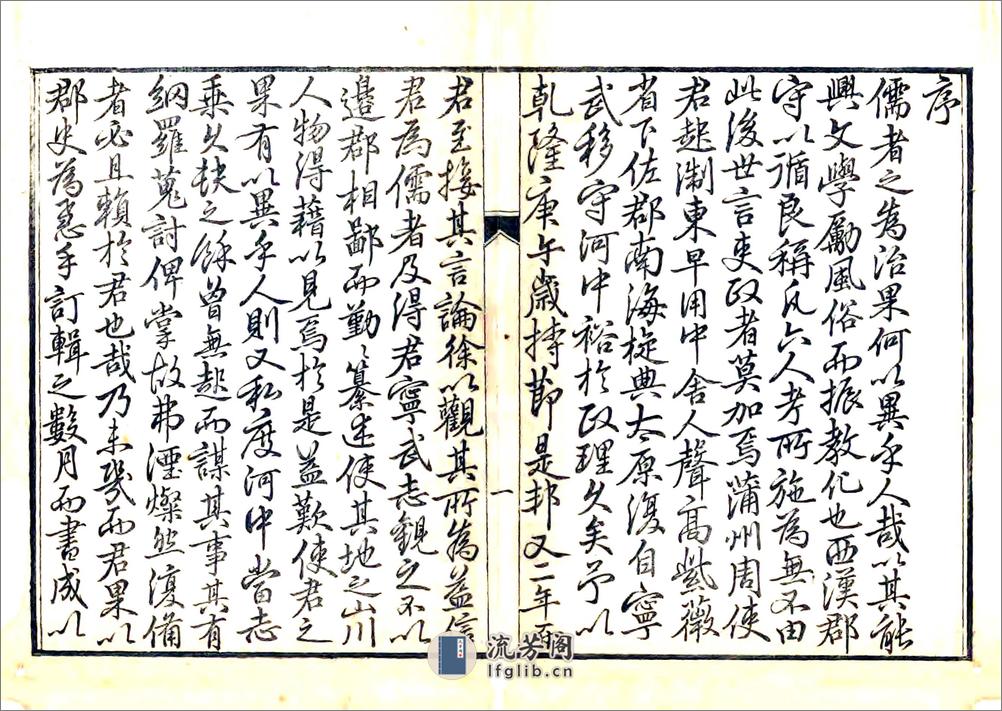 序
儒者之為治果何以異乎人哉以其能
興文學勵風俗而振教化也西漢郡
守以循良稱凡六人考所施為無不由
此後世言吏政者莫加焉蒲州周使
君起淛東早用中舍人聲高紫薇
省下佐郡南海旋典太原復自寧
武移守河中裕於政理久矣予以
乾隆庚午歲持節是邦又二年而
一
君至接其言論徐以觀其所為益信
君為儒者及得君寧武志觀之不以
邊郡相鄙而勤〻纂述使其地之山川
人物得藉以見焉於是益歎使君之
果有以異乎人則又私度河中當志
乘久缺之餘曾無起而謀其事其有
網羅蒐討俾掌故弗湮燦然復備
者必且賴於君也哉乃未幾而君果以
郡史為亟手訂輯之數月而書成以
流芳阁
lfglib.cn